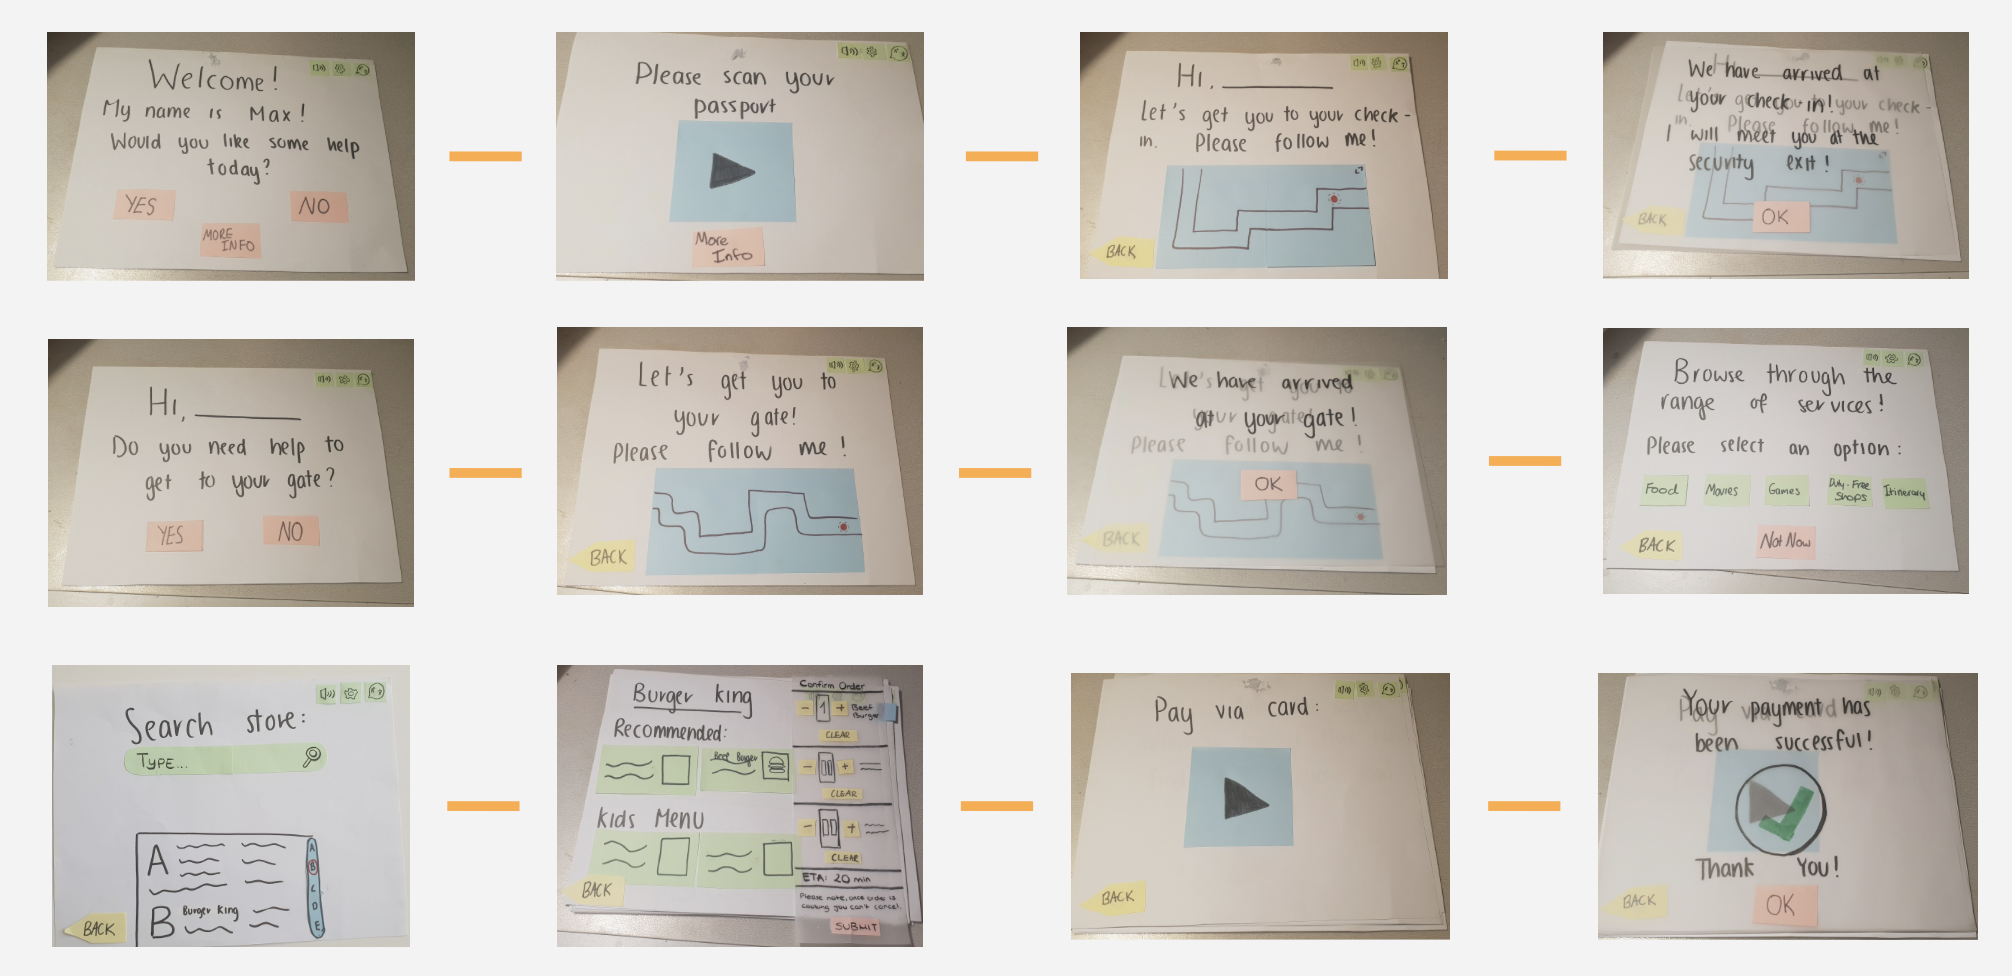 Welcome!
My name is Max!
Would you like some help
today?
YES
NO
MORE
INFO
Please scan your
passport
More
Info
Hi,
Let's get you to your check-
in. Please follow me!
BACK
We have arrived at
your check-in!
I will meet you at the
security exit!
Hi,
Let's get you to your check-
in. Please follow me!
BACK
OK
Hi,
Do you need help to
get to your gate?
YES
NO
Let's get you to
your gate!
Please follow me!
BACK
We have arrived
at your gate!
Let's get you to
your gate!
Please follow me!
OK
BACK
Browse through the
range of services!
Please select an option:
Food
Movies
Games
Duty-Free
Shops
Itinerary
BACK
Not Now
Search store:
TYPE...
A
B Burger King
A
B
C
D
E
BACK
Burger king
Recommended:
Beef Burger
Kids Menu
BACK
Confirm Order
- 1 + Beef
Burger
CLEAR
- 00 +
CLEAR
- 00 +
CLEAR
ETA: 20 min
Please note, once order is
cooking you can't cancel.
SUBMIT
Pay via card:
BACK
Your payment has
been successful!
Pay via card
Thank You!
BACK
OK